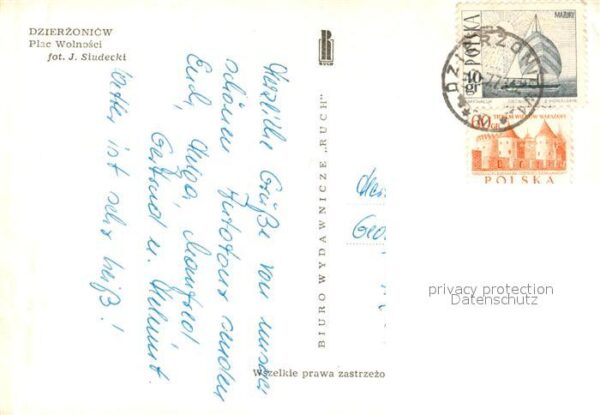 DZIERŻONIÓW
Plac Wolności
fot. J. Siudecki
Herzliche Grüße von unserer
schönen Autotour senden
Euch Helga, Manfred
Gertrud u. Helmut.
Wetter ist sehr heiß!
BIURO WYDAWNICZE „RUCH"
Wszelkie prawa zastrzeżo
MAZURY
POLSKA
10 gr
DZIERŻONI
60
GR
POLSKA
privacy protection
Datenschutz